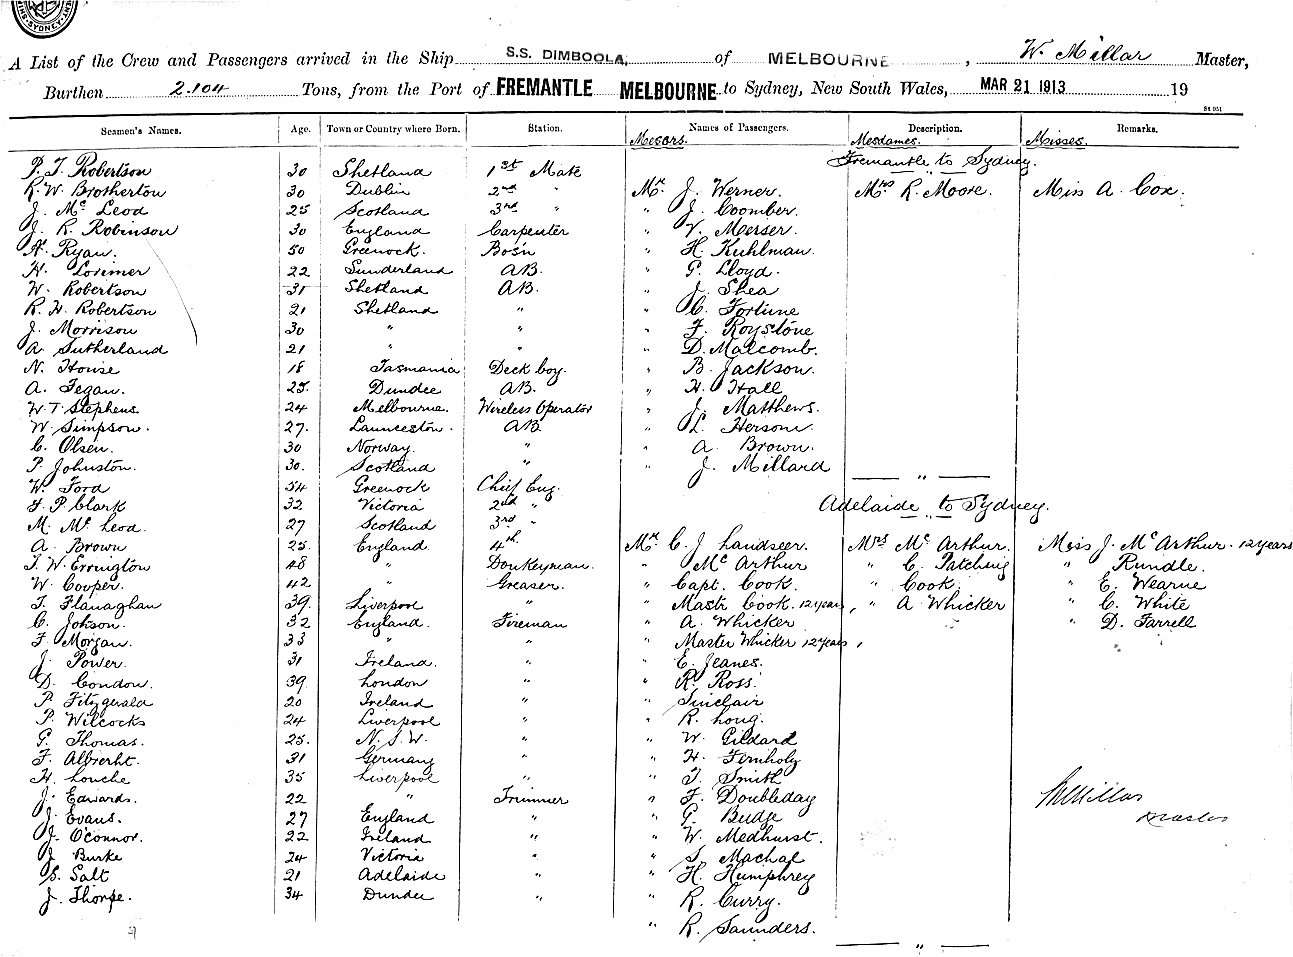 SYDNEY
A List of the Crew and Passengers arrived in the Ship S.S. DIMBOOLA, of MELBOURNE, W. Millar Master,
Burthen 2.104 Tons, from the Port of FREMANTLE MELBOURNE to Sydney, New South Wales, MAR 21 1913 19
Seamen's Names. Age. Town or Country where Born. Station. Names of Passengers. Description. Remarks.
Messrs. Mesdames. Misses.
Fremantle to Sydney.
P. T. Robertson 30 Shetland 1st Mate
R. W. Brotherton 30 Dublin 2nd " Mr. J. Werner. Mrs R. Moore. Miss A. Cox.
J. Mc Leod 25 Scotland 3rd " " J. Coomber.
J. R. Robinson 30 England Carpenter " V. Merser.
A. Ryan. 50 Greenock. Bos'n " H. Kuhlman.
H. Lorimer 22 Sunderland AB. " G. Lloyd.
W. Robertson 31 Shetland AB. " J. Shea
R. H. Robertson 21 Shetland " " C. Fortune
J. Morrison 30 " " " F. Roystone
A. Sutherland 21 " " " D. Malcomb.
N. House 18 Tasmania Deck boy. " B. Jackson.
A. Fegan. 25. Dundee AB. " H. Hall
W. T. Stephens 24 Melbourne. Wireless Operator " J. Matthews.
W. Simpson. 27. Launceston. AB " L. Herson.
C. Olsen. 30 Norway. " " A. Brown.
P. Johnston. 30. Scotland " " J. Millard
W. Ford 54 Greenock Chief Eng. "
F. P. Clark 32 Victoria 2nd " Adelaide to Sydney.
M. Mc Leod. 27 Scotland 3rd "
A. Brown 25. England. 4th Mr. C. J. Landseer. Mrs Mc Arthur. Miss J. Mc Arthur. 12 years
T. W. Errington 48 " Donkeyman. " Mc Arthur " C. Patching " Rundle.
W. Cooper. 42 " Greaser. " Capt. Cook. " Cook. " E. Wearne
T. Flanaghan 39. Liverpool " " Mastr Cook. 12 years, " A Whicker " C. White
C. Johson. 32 England Fireman " A. Whicker " D. Farrell
F. Morgan. 33 " " " Master Whicker 12 years,
J. Power. 31 Ireland. " " E. Jeanes.
D. Condon. 39. London " " R. Ross.
P. Fitzgerald 20 Ireland " " Sinclair
P. Wilcocks 24 Liverpool " " R. Long.
G. Thomas. 25. N.S.W. " " W. Gildard
F. Albrecht. 31 Germany " " H. Fernholz
H. Louche 35 Liverpool " " T. Smith
J. Edwards. 22 " Trimmer " F. Doubleday W Millar
J. Evans. 27 England " " G. Budge Master
J. O'Connor. 22 Ireland " " W. Medhurst.
J. Burke 24 Victoria " " S. Machal
S. Salt 21 Adelaide " " H. Humphrey
J. Thorpe. 34 Dundee " " R. Curry.
" R. Saunders.
"